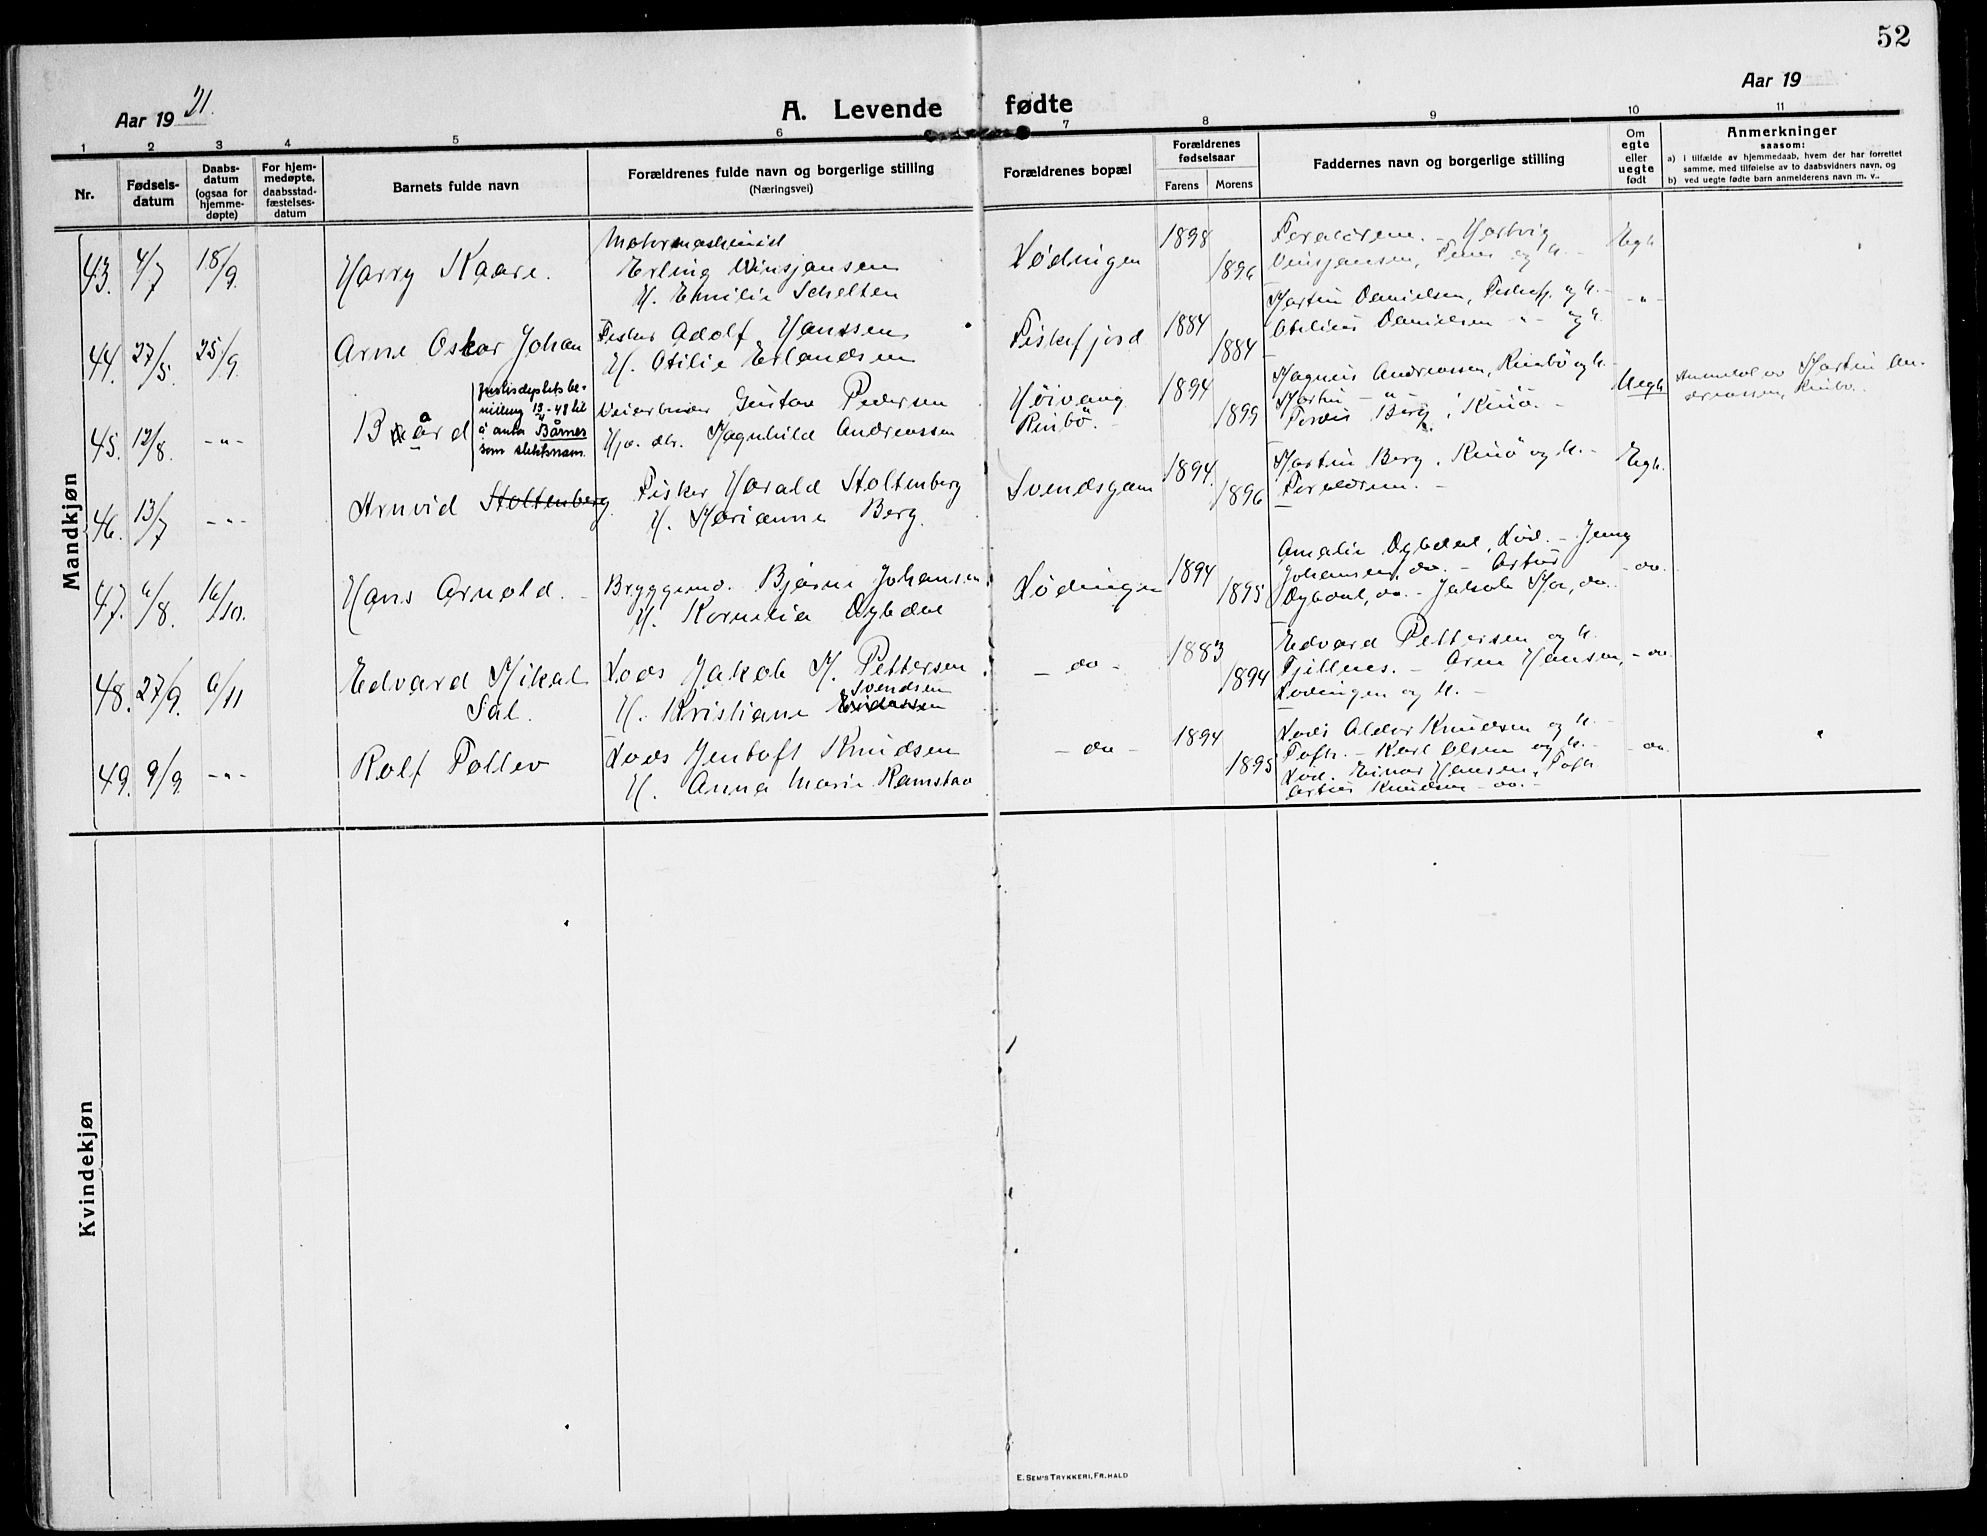 52
Aar 19 21.
A. Levende fødte
Aar 19
1 2 3 4 5 6 7 8 9 10 11
Nr.
Fødsels-
datum
Daabs-
datum
(ogsaa for
hjemme-
døpte)
For hjem-
medøpte,
daabsstad-
fæstelses-
datum
Barnets fulde navn
Forældrenes fulde navn og borgerlige stilling
(Næringsvei)
Forældrenes bopæl
Forældrenes
fødselsaar
Farens Morens
Faddernes navn og borgerlige stilling
Om
egte
eller
uegte
født
Anmerkninger
saasom:
a) i tilfælde av hjemmedaab, hvem der har forrettet
samme, med tilføielse av to daabsvidners navn, og
b) ved uegte fødte barn anmelderens navn m. v..
Mandkjøn
43. 4/7 18/9. Harry Kaare.
Motormaskinist
Erling Winsjansen
H. Emilie Schelten
Lødingen 1898 1896
Forældrene. - Hartvig
Vinsjansen, og h. -
Egt.
44. 27/5. 25/9. Arne Oskar Johan
Fisker Adolf Hanssen
H. Otilie Erlandsen
Fiskefjord 1884 1884
Martin Danielsen, Fiskefj. og h. -
Danielsen - " - og h.
- " -
45. 12/8. - " - Bård
Justisdeptets be-
villing 13/4-48 til
å anta Bårnes
som slektsnavn.
Gustav Pedersen
Magnhild Andreassen
Høivang
Rinbø. 1894 1899
Magnus Andreassen, Rinbø og h.
Martin - " -
Berg, Rinø. -
Uegt.
Anmeldt av Martin An-
dreassen, Rinbø.
46. 13/7 - " - Arnvid Stoltenberg
Fisker Harald Stoltenberg
H. Marianne Berg.
Svendsgam 1894. 1896
Martin Berg, Rinø og h. -
Forældrene. -
Egt.
47. 6/8. 16/10. Hans Arnold. -
Bryggemd. Bjarne Johansen
H. Kornelia Dybdal
Lødingen 1894 1895
Amalie Dybdal, Lød. - Jenny
Johansen, do. - Artur
Dybdal, do. - Jakob Moe, do.
- do.
48. 27/9. 6/11 Edvard Mikal
Sal.
Lods Jakob M. Pettersen
Svendsen
H. Kristiane
- do - 1883 1894
Edvard Pettersen og h.
Fjellnes. - Arne Hansen,
Lødingen og h. -
- do.
49. 9/9. - " - Rolf Tollev
Lods Jentoft Knudsen
H. Anna Marie Ramstad
- do - 1894 1895
Lods Aldor Knudsen og h. -
Toft. - Karl Olsen og h. -
Lød. Einar Hansen, Toft
Artur Knudsen - do. -
- do.
Kvindekjøn
E. SEM'S TRYKKERI, FR.HALD